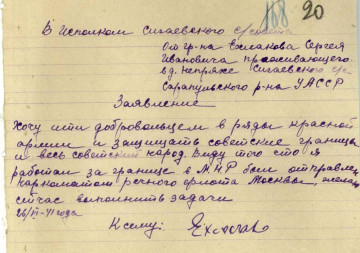 188 20
В Исполком Сигаевского с/совета
От гр-на Ехлакова Сергея
Ивановича проживающего
в д. Непряхе Сигаевского с/с
Сарапульского р-на УАССР
Заявление
Хочу итти добровольцем в ряды красной
армии и защищать советские границы
и весь советский народ. Ввиду того что я
работал за границе в М.Н.Р был отправлен
наркоматом речного флота Москвы, желаю
сичас выполнить задачи
26/VI-41 года
К сему: